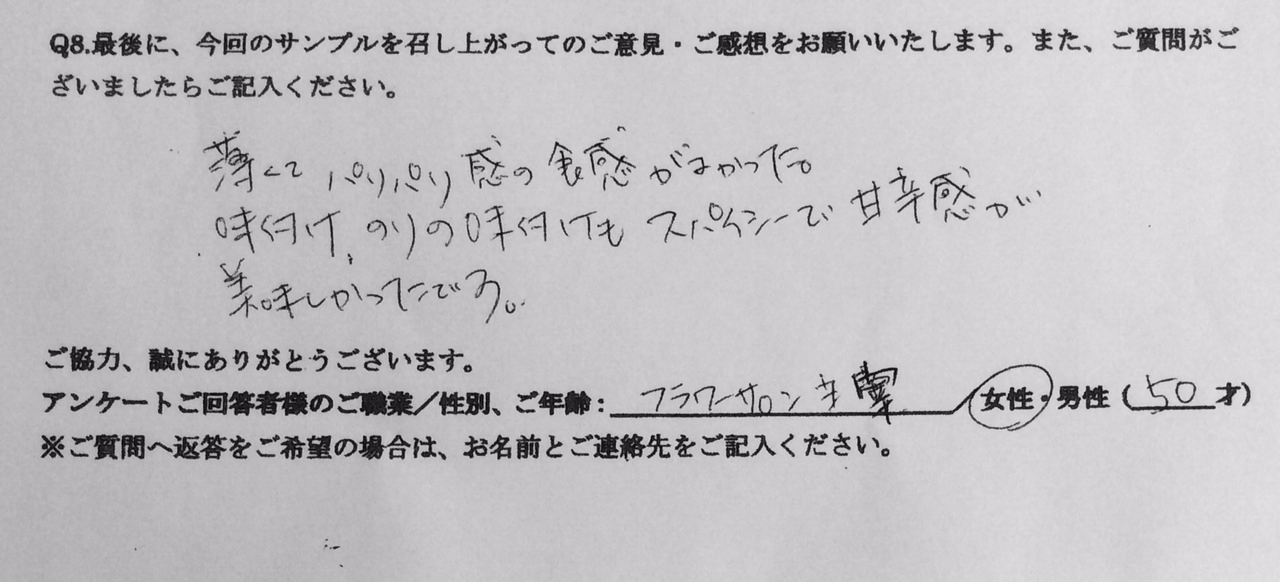 Q8.最後に、今回のサンプルを召し上がってのご意見・ご感想をお願いいたします。また、ご質問がご
ざいましたらご記入ください。
薄くて パリパリ感の食感がよかった。
味付け、のりの味付けも スパイシーで 甘辛感が
美味しかったです。
ご協力、誠にありがとうございます。
アンケートご回答者様のご職業／性別、ご年齢: フラワーサロン主 女性・男性 (50才)
※ご質問へ返答をご希望の場合は、お名前とご連絡先をご記入ください。